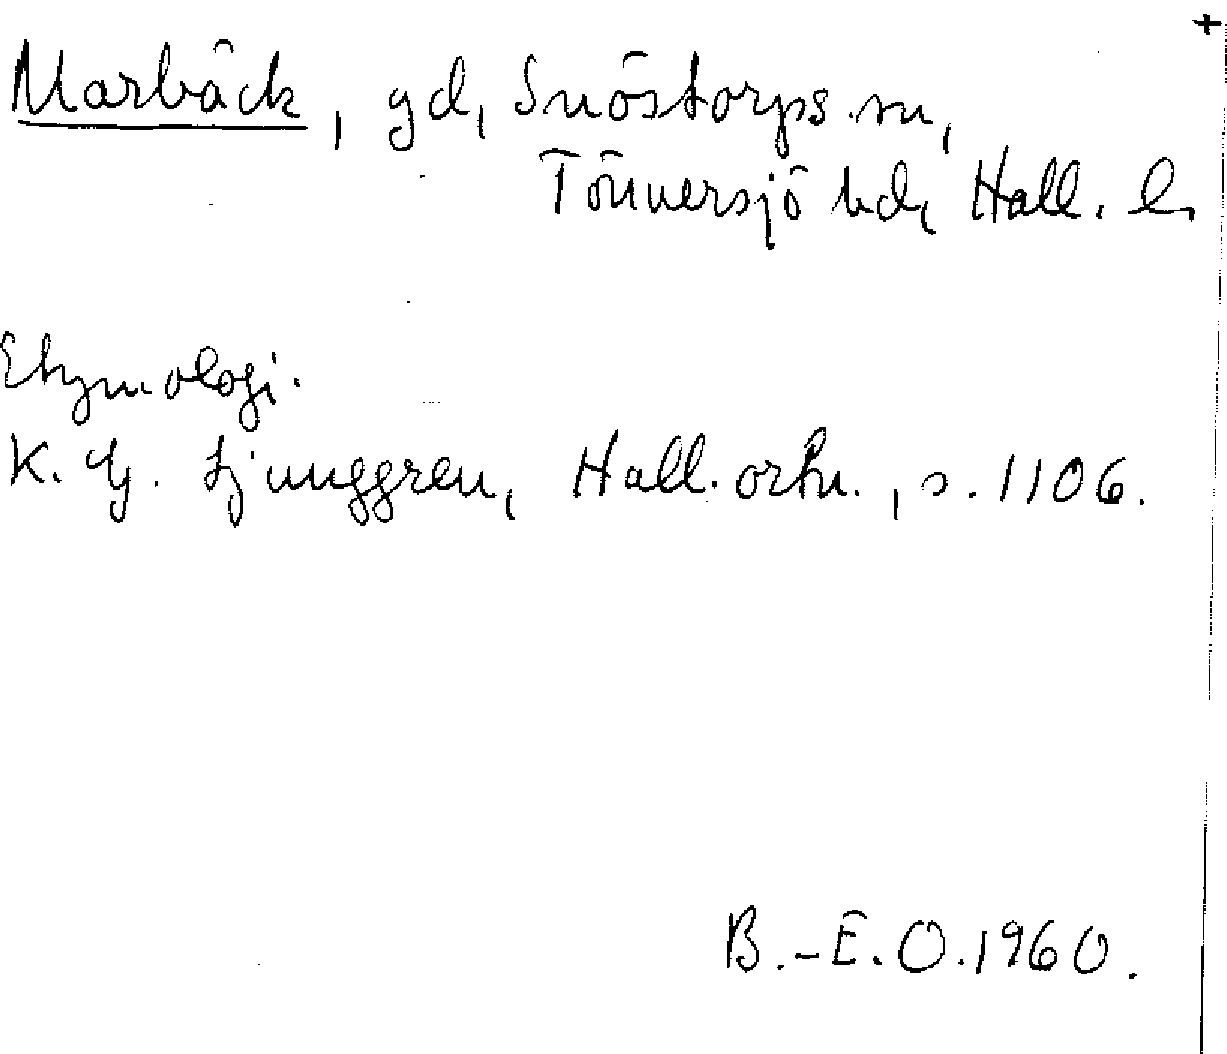 +
Marbäck, gd, Snöstorps sn,
Tönnersjö hd, Hall. l.
Etymologi.
K. G. Ljunggren, Hall. ortn., s. 1106.
B.-E. O. 1960.